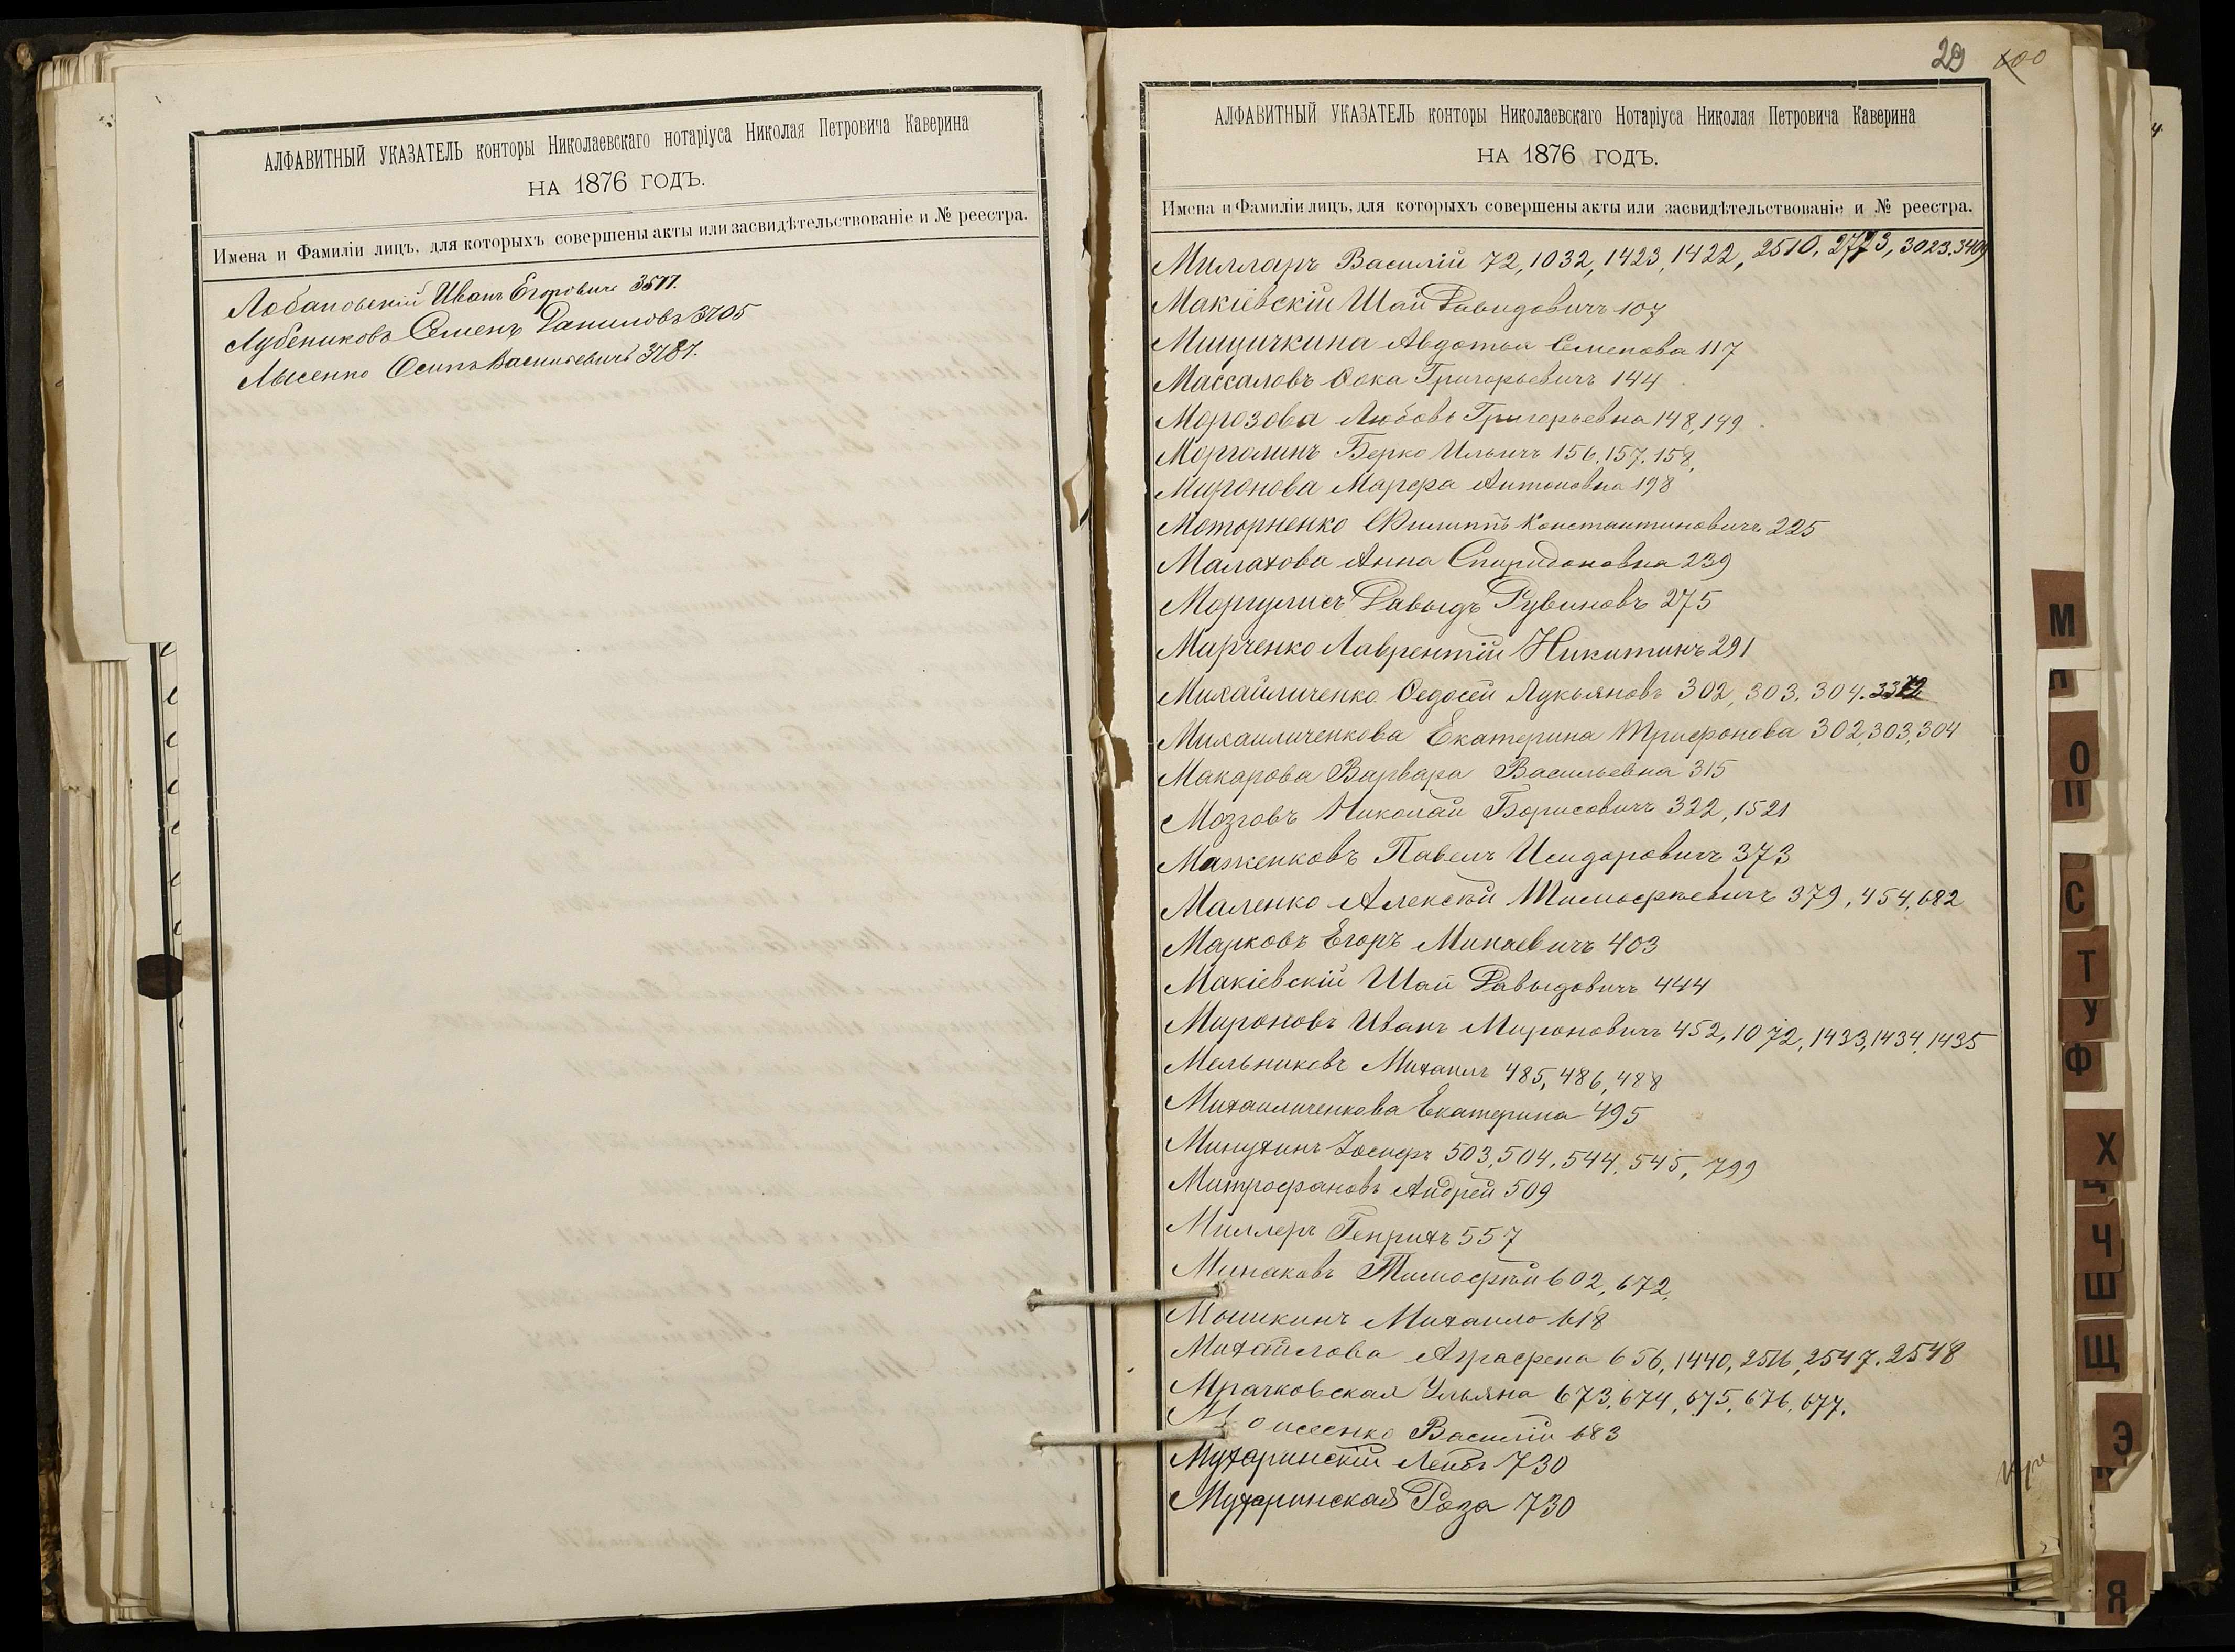 АЛФАВИТНЫЙ УКАЗАТЕЛЬ конторы Николаевскаго нотаріуса Николая Петровича Каверина
НА 1876 ГОДЪ.
Имена и Фамиліи лицъ, для которыхъ совершены акты или засвидѣтельствованіе и № реестра.
Лобановскій Иванъ Егоровичъ 3577.
Лубениковъ Семенъ Даниловъ 3705
Лысенко Осипъ Васильевичъ 3787.
29 600
АЛФАВИТНЫЙ УКАЗАТЕЛЬ конторы Николаевскаго Нотаріуса Николая Петровича Каверина
НА 1876 ГОДЪ.
Имена и Фамиліи лицъ, для которыхъ совершены акты или засвидѣтельствованіе и № реестра.
Милларъ Василій 72, 1032, 1423, 1422, 2510, 2773, 3023, 3409
Макіевскій Шай Давидовичъ 107
Мищичкина Авдотья Семенова 117
Массаловъ Фока Григорьевичъ 144
Морозова Любовь Григорьевна 148, 149
Морголинъ Берко Ильичъ 156. 157. 158,
Миронова Марфа Антоновна 198
Моторненко Филиппъ Константиновичъ 225
Малахова Анна Спиридоновна 239
Моргулисъ Давыдъ Рувиновъ 275
Марченко Лаврентій Никитинъ 291
Михайличенко Федосѣй Лукьяновъ 302, 303, 304.
Михаиличенкова Екатерина Трифонова 302, 303, 304
Макарова Варвара Васильевна 315
Мозговъ Николай Борисовичъ 322, 1521
Маженковъ Павелъ Исидоровичъ 373
Маленко Алексѣй Тимофѣевичъ 379, 454, 682
Марковъ Егоръ Минаевичъ 403
Макіевскій Шай Давыдовичъ 444
Мироновъ Иванъ Мироновичъ 452, 1072, 1433, 1434, 1435
Мельниковъ Михаилъ 485, 486, 488
Михаиличенкова Екатерина 495
Минухинъ Іосифъ 503, 504, 544, 545, 799
Митрофановъ Андрей 509
Миллеръ Генрихъ 557
Минаковъ Тимофѣй 602, 672,
Мошкинъ Михаило 618
Михайлова Аграфена 656, 1440, 2546, 2547, 2548
Мрачковская Ульяна 673, 674, 675, 676, 677.
Моисеенко Василій 683
Мухаринскій Лейбъ 730
Мухаринская Роза 730
М
О
П
С
Т
У
Ф
Х
Ц
Ч
Ш
Щ
Э
Я